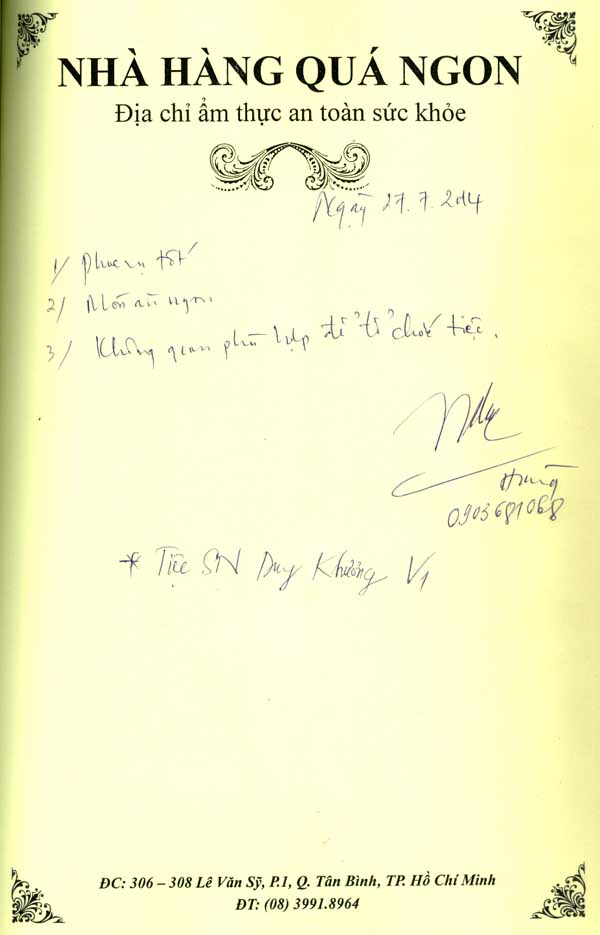 NHÀ HÀNG QUÁ NGON
Địa chỉ ẩm thực an toàn sức khỏe
Ngày 27.7.2014
1/ Phục vụ tốt
2/ Món ăn ngon
3/ Không gian phù hợp để tổ chức tiệc.
Hùng
0903681068
* Tiệc SN Duy Khương V1
ĐC: 306 – 308 Lê Văn Sỹ, P.1, Q. Tân Bình, TP. Hồ Chí Minh
ĐT: (08) 3991.8964